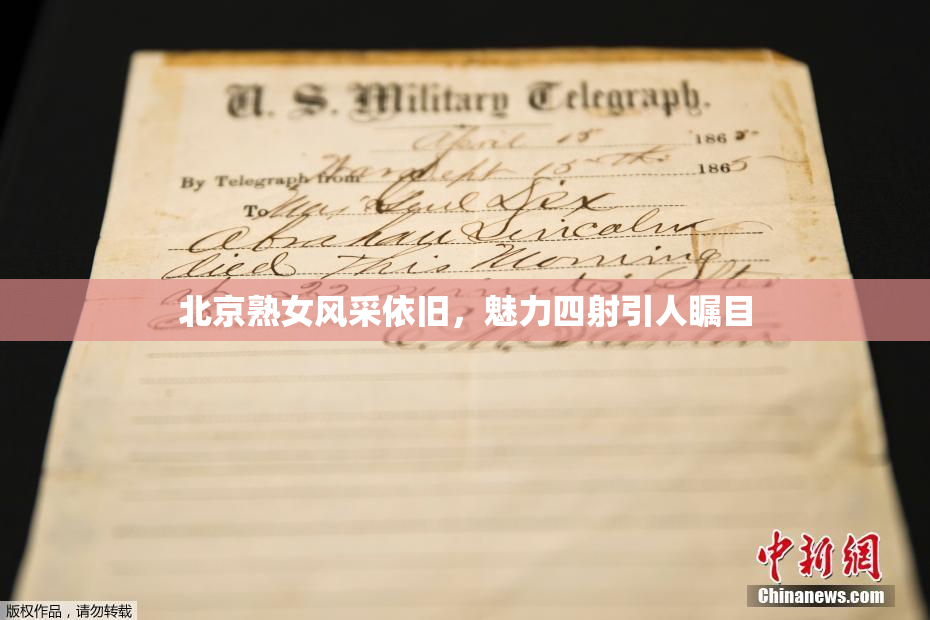 U. S. Military Telegraph.
April 15 1865.
By Telegraph from War Dept 15th 1865
To Maj Genl Dix
Abraham Lincoln
died This Morning
at 22 minutes after
北京熟女风采依旧，魅力四射引人瞩目
E. M. Stanton
中新网
Chinanews.com
版权作品，请勿转载